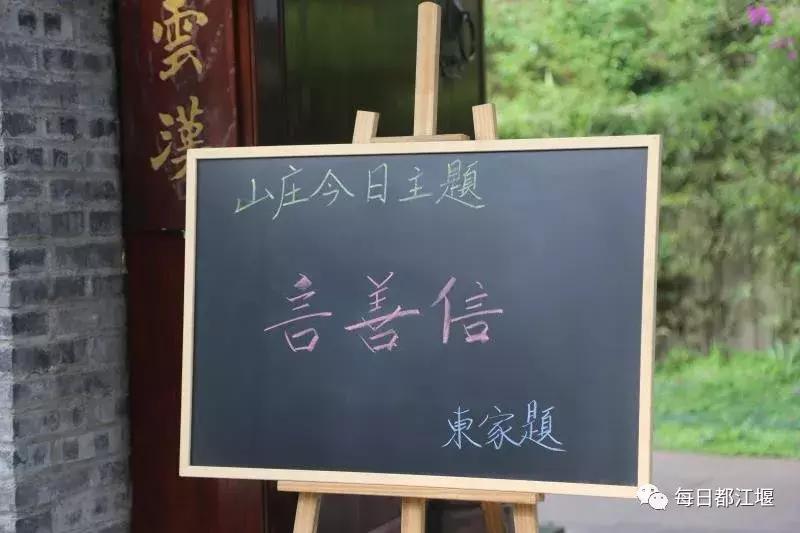 雲漢
山庄今日主题
言善信
東家题
每日都江堰